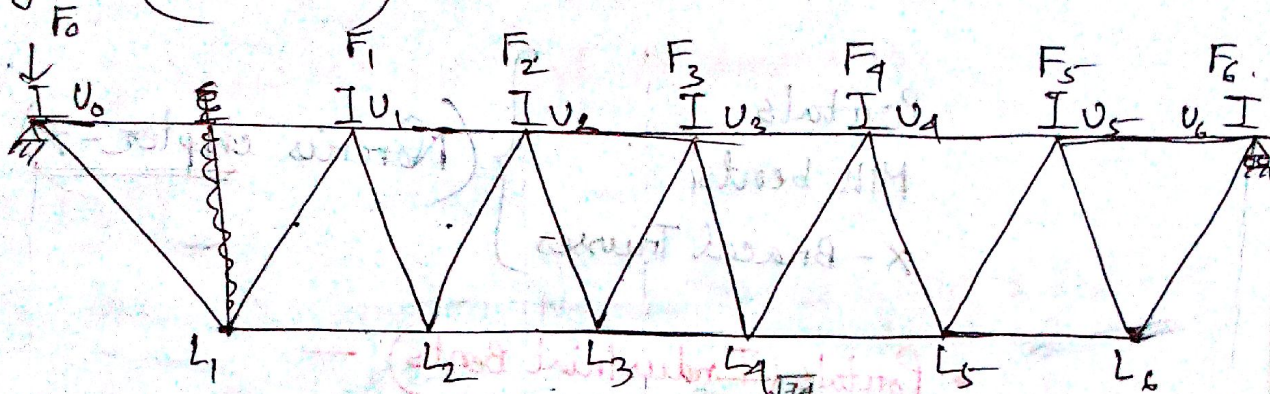 F₀
F₁ F₂ F₃ F₄ F₅ F₆
U₀ U₁ U₂ U₃ U₄ U₅ U₆
L₁ L₂ L₃ L₄ L₅ L₆